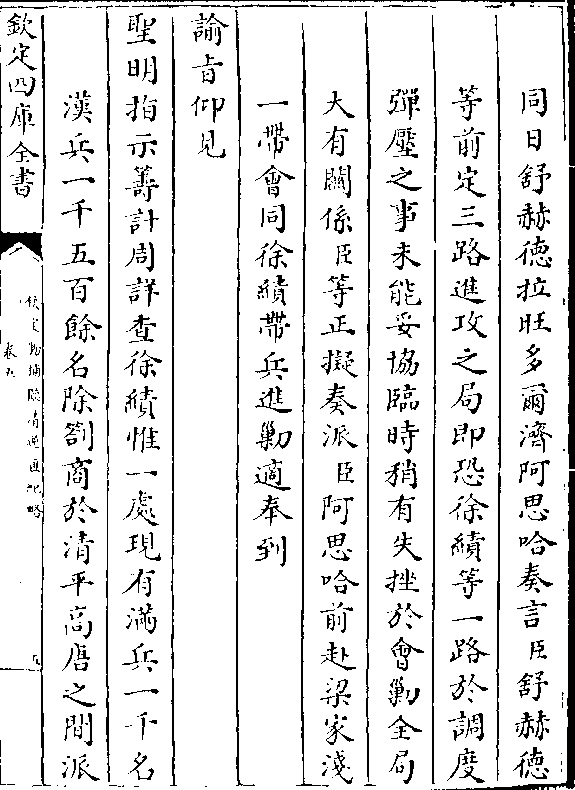 同日舒赫德拉旺多爾濟阿思哈奏言臣舒赫德
等前定三路進攻之局即恐徐績等一路於調度
彈壓之事未能妥協臨時稍有失挫於會勦全局
大有關係臣等正擬奏派臣阿思哈前赴梁家淺
一帶會同徐績帶兵進勦適奉到
諭旨仰見
聖明指示籌計周詳查徐績惟一處現有滿兵一千名
漢兵一千五百餘名除劄商於清平高唐之間派
欽定四庫全書
欽定勦捕臨清逆匪紀略
卷九